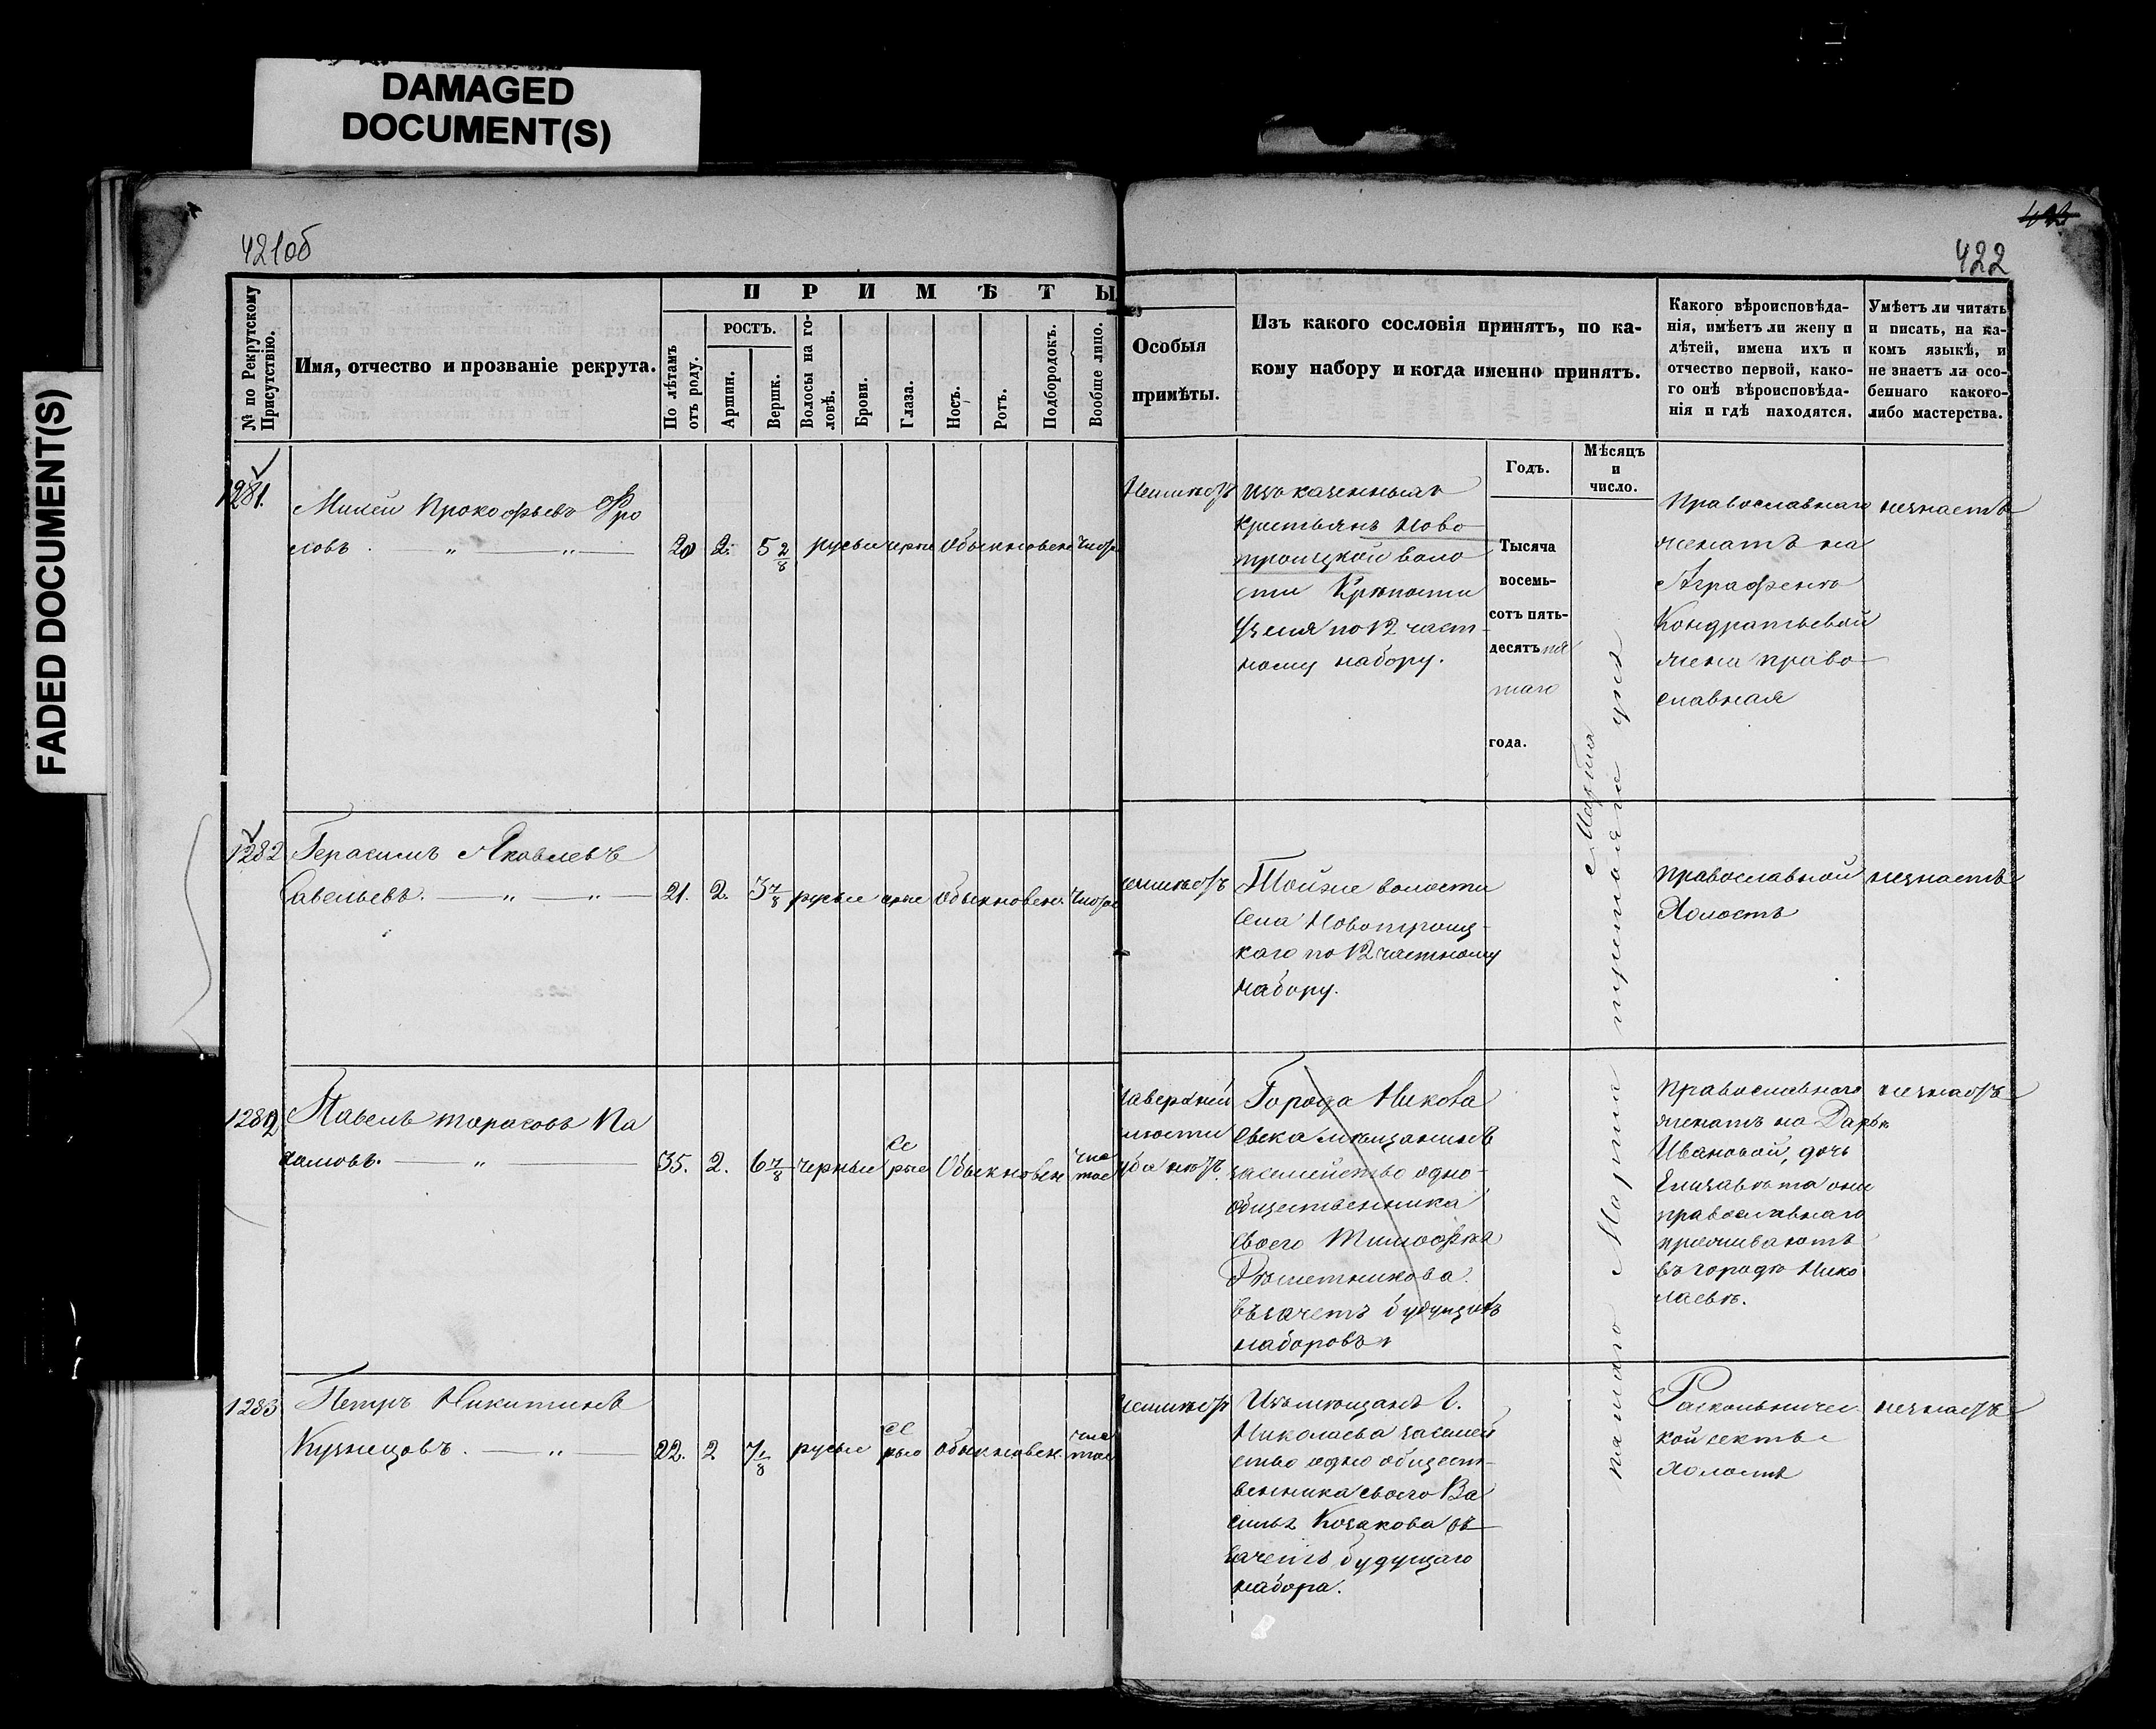 DAMAGED
DOCUMENT(S)
FADED DOCUMENT(S)
421об
422
№ по Рекрутскому
Присутствію.
Имя, отчество и прозваніе рекрута.
ПРИМѢТЫ
По лѣтамъ
отъ роду.
РОСТЪ.
Аршин.
Вершк.
Волосы на го-
ловѣ.
Брови.
Глаза.
Носъ.
Ротъ.
Подбородокъ.
Вообще лицо.
Особыя
примѣты.
Изъ какого сословія принятъ, по ка-
кому набору и когда именно принятъ.
Какого вѣроисповѣда-
нія, имѣетъ ли жену и
дѣтей, имена ихъ и
отчество первой, како-
го онѣ вѣроисповѣда-
нія и гдѣ находятся.
Умѣетъ ли читать
и писать, на ка-
комъ языкѣ, и
не знаетъ ли осо-
беннаго какого-
либо мастерства.
Годъ.
Мѣсяцъ
и
число.
1281.
Милей Прокофьевъ Фро
ловъ.
20 2. 5 2/8 русыи Обыкновен
изъ казенныхъ
крестьянъ Ново
троицкой воло
сти
по 12 част-
ному набору.
Тысяча
восемь-
сотъ пять-
десятъ пя
таго
года.
Марта
Православнаго
женатъ на
Аграфенѣ
Кондратьевой
жена право
славная
незнаетъ
1282
Герасимъ Яковлевъ
Савельевъ.
21. 2. 3 7/8 русыи обыкновен.
Тойже волости
Села Новотроиц-
каго по 12 частному
набору.
Православной
Холостъ
незнаетъ
1282
Павелъ Тарасовъ Па
хомовъ.
35. 2. 6 7/8 черныи се
рые Обыкновен чис
тое
Города Никола
евска мещанинъ
засемейство одно-
общественника
своего Тимофея
Рѣшетникова
въ зачетъ будущихъ
наборовъ
Православнаго
женатъ на Дарьѣ
Ивановой, дочь
Елизавѣта они
православнаго
проживаютъ
въ городѣ Нико
лаевѣ.
незнаетъ
1283
Петръ Никитинъ
Кузнецовъ.
22. 2 7 1/8 русыи се
рые обыкновен. чис
тое
Изъ мещанъ г.
Николаева засемей
ство одно общест-
венника своего Ва
силья Козакова въ
зачетъ будущаго
набора.
Марта
Раскольничес
кой секты
Холостъ
незнаетъ